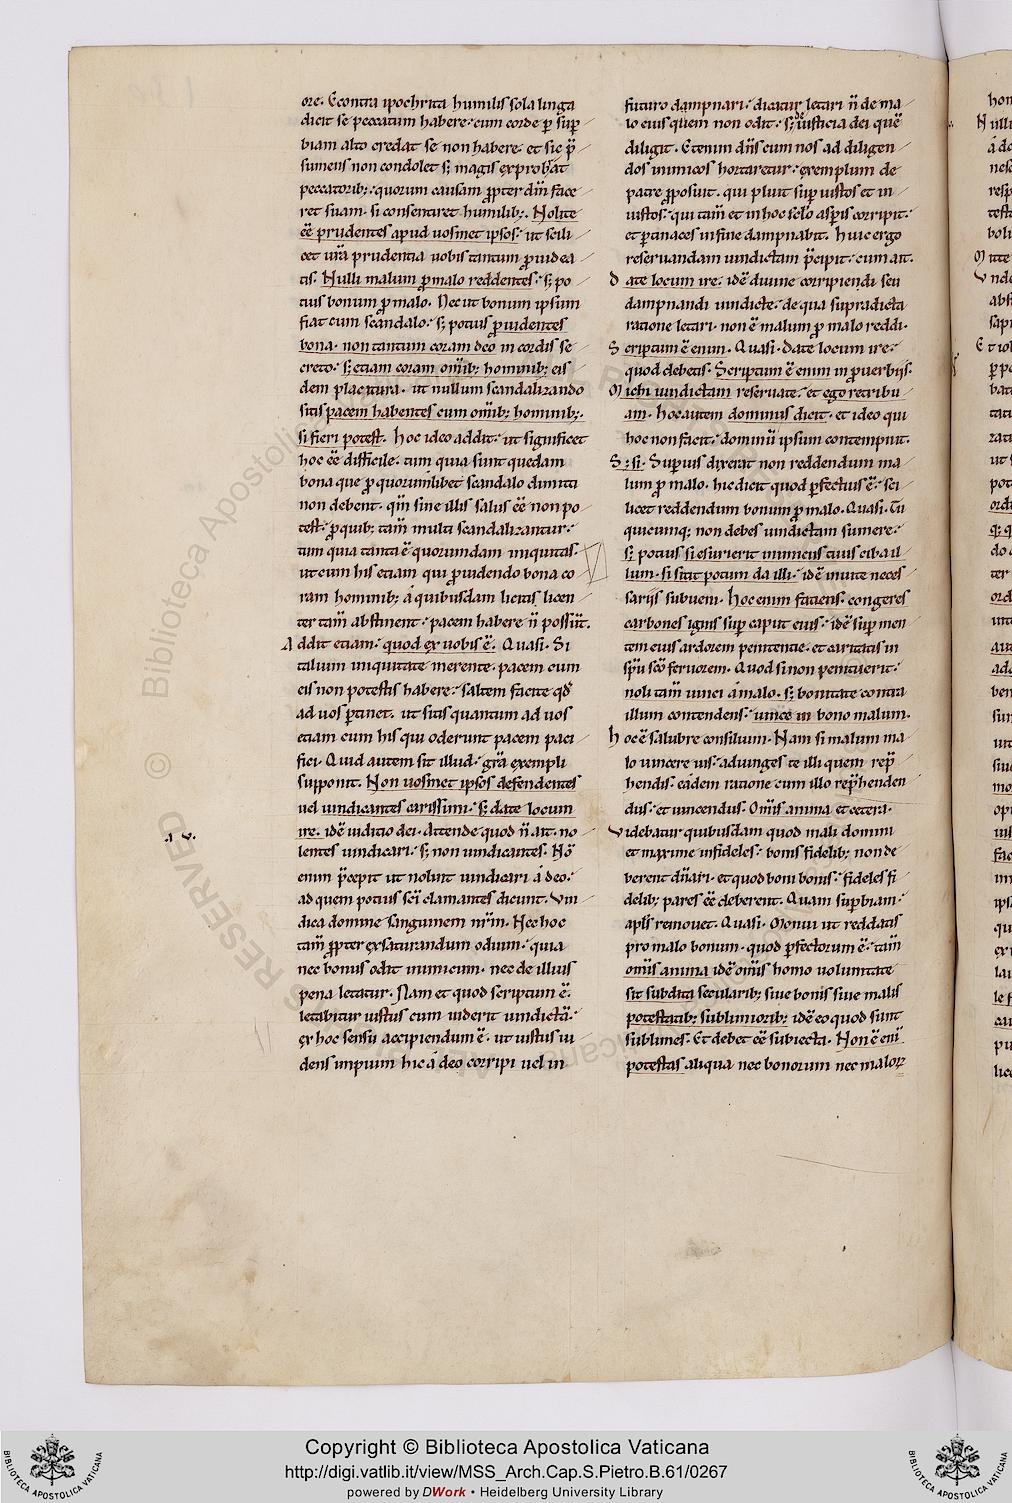 ore. Econtra ipochrita humilis sola linga
dicit se peccatum habere: cum corde p̱ sup̱
biam alto credat se non habere. et sic p̄
sumens non condolet s; magis exprobrat
peccatorib;: quorum causam ꝓpter dm̄ face
ret suam. si consentiret humilib;. Nolite
eē prudentes apud uosmet ipsos: ut scili
cet ur̄a prudentia uobis tantum ꝓuidea
tis. Nulli malum ꝓ malo reddentes: s; po
tius bonum ꝓ malo. Nec ut bonum ipsum
fiat cum scandalo: s; potius ꝓuidentes
bona. non tantum coram deo in cordis se
creto: s; etiam coram om̄ib; hominib; eis
dem placitura. ut nullum scandalizando
sitis pacem habentes cum om̄ib; hominib;.
si fieri potest. hoc ideo addit: ut significet
hoc eē difficile. tum quia sunt quedam
bona que ꝓ quorumlibet scandalo dimitti
non debent. qm̄ sine illis salus eē non po
test: ꝑ quib; tam̄ multi scandalizantur:
tum quia tanta ē quorundam iniquitas.
ut cum his etiam qui ꝓuidendo bona co
ram hominib; á quibusdam licitis licen
ter tam̄ abstinent: pacem habere n̄ possūt.
Addit etiam: quod ex uobis ē. Quasi. Si
talium iniquitate merente. pacem cum
eis non potestis habere: saltem facite qd̄
ad uos ꝑtinet. ut sitis quantum ad uos
etiam cum his qui oderunt pacem paci
fici. Quid autem sit illud: gr̄a exempli
supponit. Non uosmet ipsos defendentes
uel uindicantes carissimi: s; date locum
ire. idē iuditio dei. Attende quod n̄ ait. no
lentes uindicari: s; non uindicantes. Nō
enim p̄cepit ut nolint uindicari á deo:
ad quem potius sc̄i clamantes dicunt. Vin
dica domine sanguinem nr̄m. Nec hoc
tam̄ ꝓpter exsaturandum odium: quia
nec bonus odit inimicum. nec de illius
pena letatur. Nam et quod scriptum ē.
letabitur iustus cum uiderit uindictā:
ex hoc sensu accipiendum ē. ut iustus ui
dens impium hic á deo corripi uel in
A. V.
futuro dampnari: dicatur letari n̄ de ma
lo eius quem non odit: s; iusticia dei quē
diligit. Etenim dn̄s cum nos ad diligen
dos inimicos hortaretur: exemplum de
patre ꝓposuit. qui pluit sup̱ iustos et in
iustos: qui tam̄ et in hoc sclo aspis corripit:
et ꝑtinaces in fine dampnabit. Huic ergo
reseruandam uindictam p̄cipit: cum ait.
Date locum ire: idē diuine corripiendi seu
dampnandi uindicte: de qua supradicta
ratione letari. non ē malum ꝓ malo reddi.
Scriptum ē enim. Quasi. date locum ire:
quod debetis. Scriptum ē enim in ꝓuerbijs.
Michi uindictam reseruate: et ego retribu
am. hoc autem dominus dicit. et ideo qui
hoc non facit: dominū ipsum contempnit.
S; si. Superius dixerat non reddendum ma
lum ꝓ malo. hic dicit quod ꝑfectius ē: sci
licet reddendum bonum ꝓ malo. Quasi. Tu
quicunq; non debes uindictam sumere:
s; potius si esurierit inimicus tuus ciba il
lum. si sitit potum da illi: idē inuite neces
sarijs subueni. hoc enim faciens. congeres
carbones ignis sup̱ caput eius: idē sup̱ men
tem eius ardorem penitentie. et caritatis in
sp̄u sc̄o feruorem. Quod si non penituerit:
noli tam̄ uinci á malo. s; bonitate contra
illum contendens: uince in bono malum.
hoc ē salubre consilium. Nam si malum ma
lo uincere uis: adiunges te illi quem rep̄
hendis. eádem ratione cum illo rep̄hen
dus: et uincendus. Om̄is anima et cetera.
Videbatur quibusdam quod mali domini
et maxime infideles: bonis fidelib; non de
berent dn̄ari. et quod boni bonis: fideles fi
delib; pares eē deberent. Quam sup̱biam:
apl̄s remouet. Quasi. Monui ut reddatis
pro malo bonum. quod ꝑfectorum ē: tam̄
om̄is anima idē om̄is homo uoluntate
sit subdita secularib; siue bonis siue malis
potestatib; sublimiorib; idē eo quod sunt
sublimes. Et debet eē subiecta. Non ē eni
potestas aliqua nec bonorum nec maloꝝ
Copyright © Biblioteca Apostolica Vaticana
http://digi.vatlib.it/view/MSS_Arch.Cap.S.Pietro.B.61/0267
powered by DWork • Heidelberg University Library